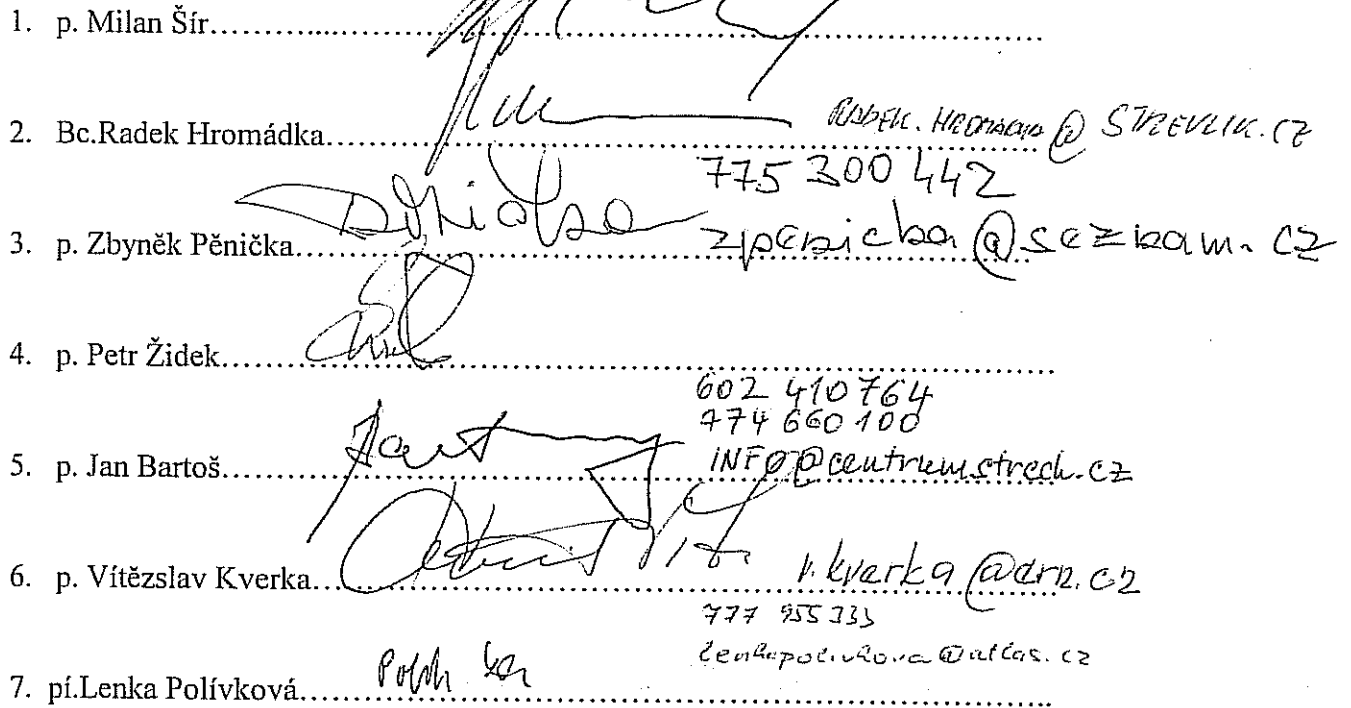 1. p. Milan Šír.............................................................................
2. Bc.Radek Hromádka............................................................. RADEK.HROMADKA@STREVLIK.CZ
775 300 442
3. p. Zbyněk Pěnička............................................................. zpenicka@seznam.cz
4. p. Petr Židek.............................................................................
602 410 764
774 660 100
5. p. Jan Bartoš............................................................. INFO@centrumstrech.cz
6. p. Vítězslav Kverka............................................................. v.kverka@drn.cz
777 955 333
lenkapolivkova@atlas.cz
7. pí.Lenka Polívková.............................................................................